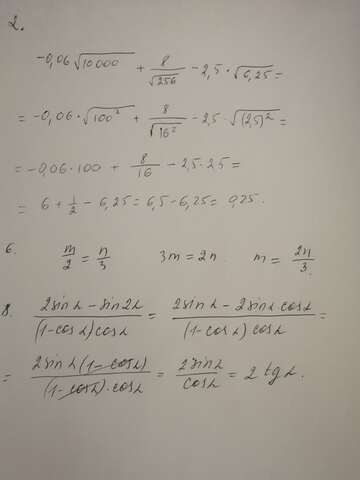 2.
-0,06 √10000 + 8/√256 - 2,5 · √6,25 =
= -0,06 · √100² + 8/√16² - 2,5 · √(2,5)² =
= -0,06 · 100 + 8/16 - 2,5 · 2,5 =
= 6 + 1/2 - 6,25 = 6,5 - 6,25 = 0,25.
6. m/2 = n/3 3m = 2n m = 2n/3.
8. (2sinα - sin2α)/((1-cosα)cosα) = (2sinα - 2sinα·cosα)/((1-cosα)cosα) =
= (2sinα(1-cosα))/((1-cosα)·cosα) = 2sinα/cosα = 2tgα.